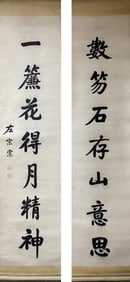 數笏石存山意思
一簾花得月精神
左宗棠